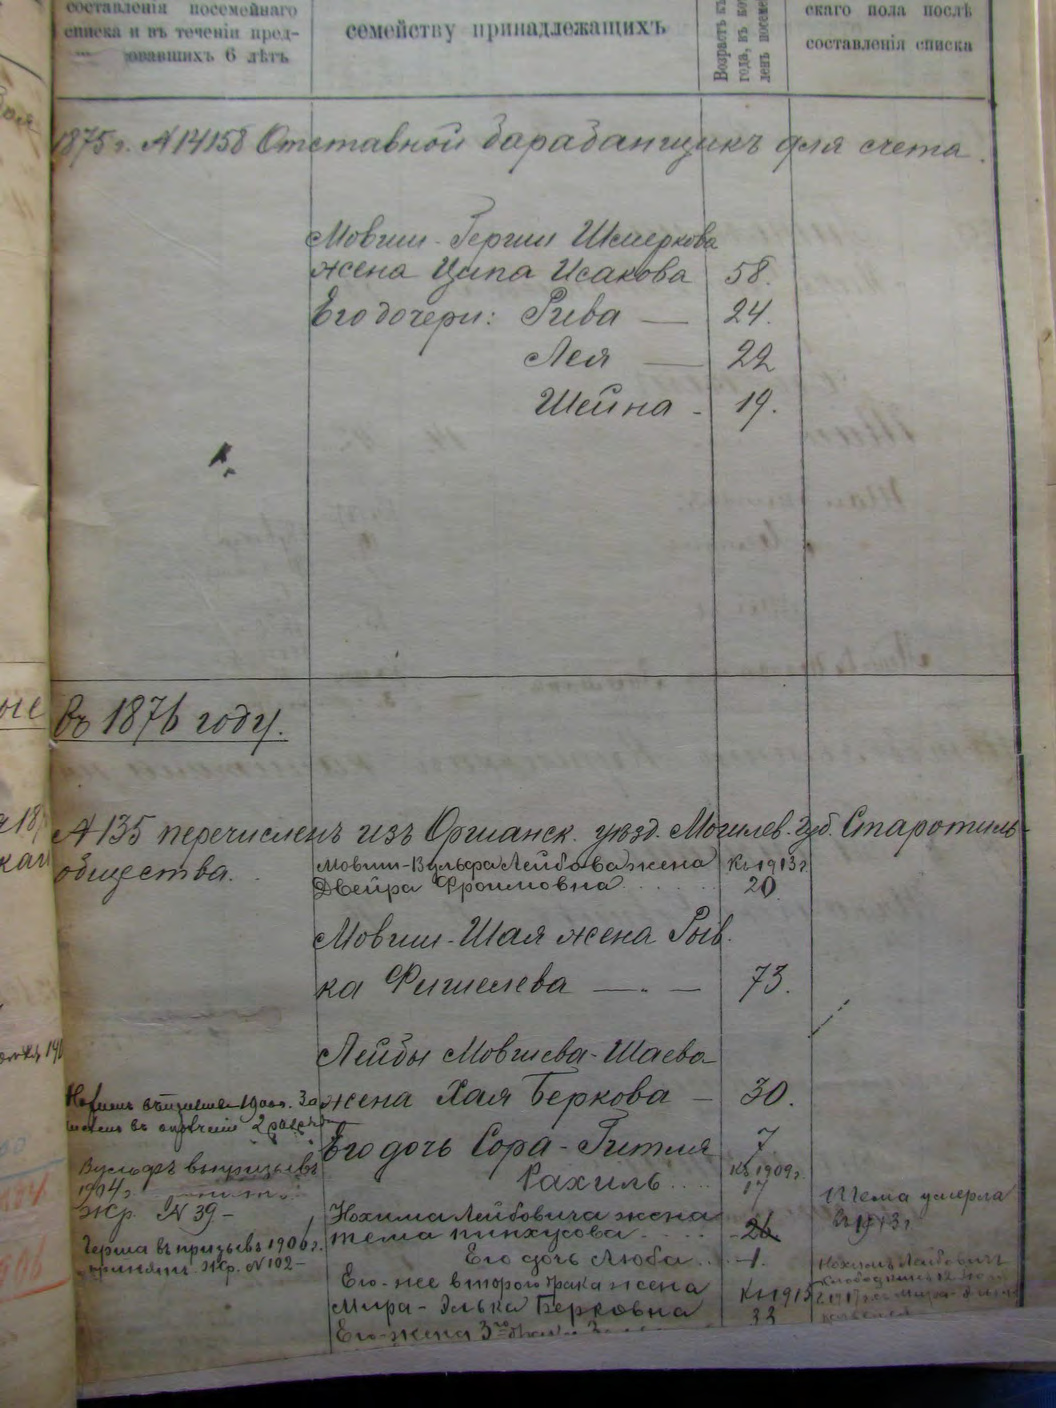 составленія посемейнаго
списка и въ теченіи пред-
овавшихъ 6 лѣтъ
семейству принадлежащихъ
Возрастъ къ
года, въ ко
ленъ посеме
скаго пола послѣ
составленія списка
1875 г. № 14158 Отставной барабанщикъ для счета.
Мовши-Герши Шмеркова
жена Ципа Исакова 58.
Его дочери: Рива — 24.
Лея — 22
Шейна - 19.
въ 1876 году.
№ 135 перечисленъ изъ Оршанск. уѣзд. Могилев. Губ.
общества.
Мовши-Вульфа Лейбова жена Къ 1913 г.
Двейра Фроимовна 20.
Мовши-Шая жена Рыв-
ка Фишелева — 73.
Лейбы Мовшева-Шаева
жена Хая Беркова — 30.
Его дочь Сора-Гитля 7.
Къ 1909 г.
Рахиль 17
Нохима Лейбовича жена
тема пинхусова 26
Его дочь Люба 1.
Его-же второго брака жена Къ 1915
Мира-Элька Берковна 33
Его-жена 3
1900 г.
2
Вульфъ
1904 г.
Жр. № 39 -
Герша въ призывъ 1906 г.
принятъ. Жр. № 102 -
Тема умерла
Нохимъ Лейбовичъ